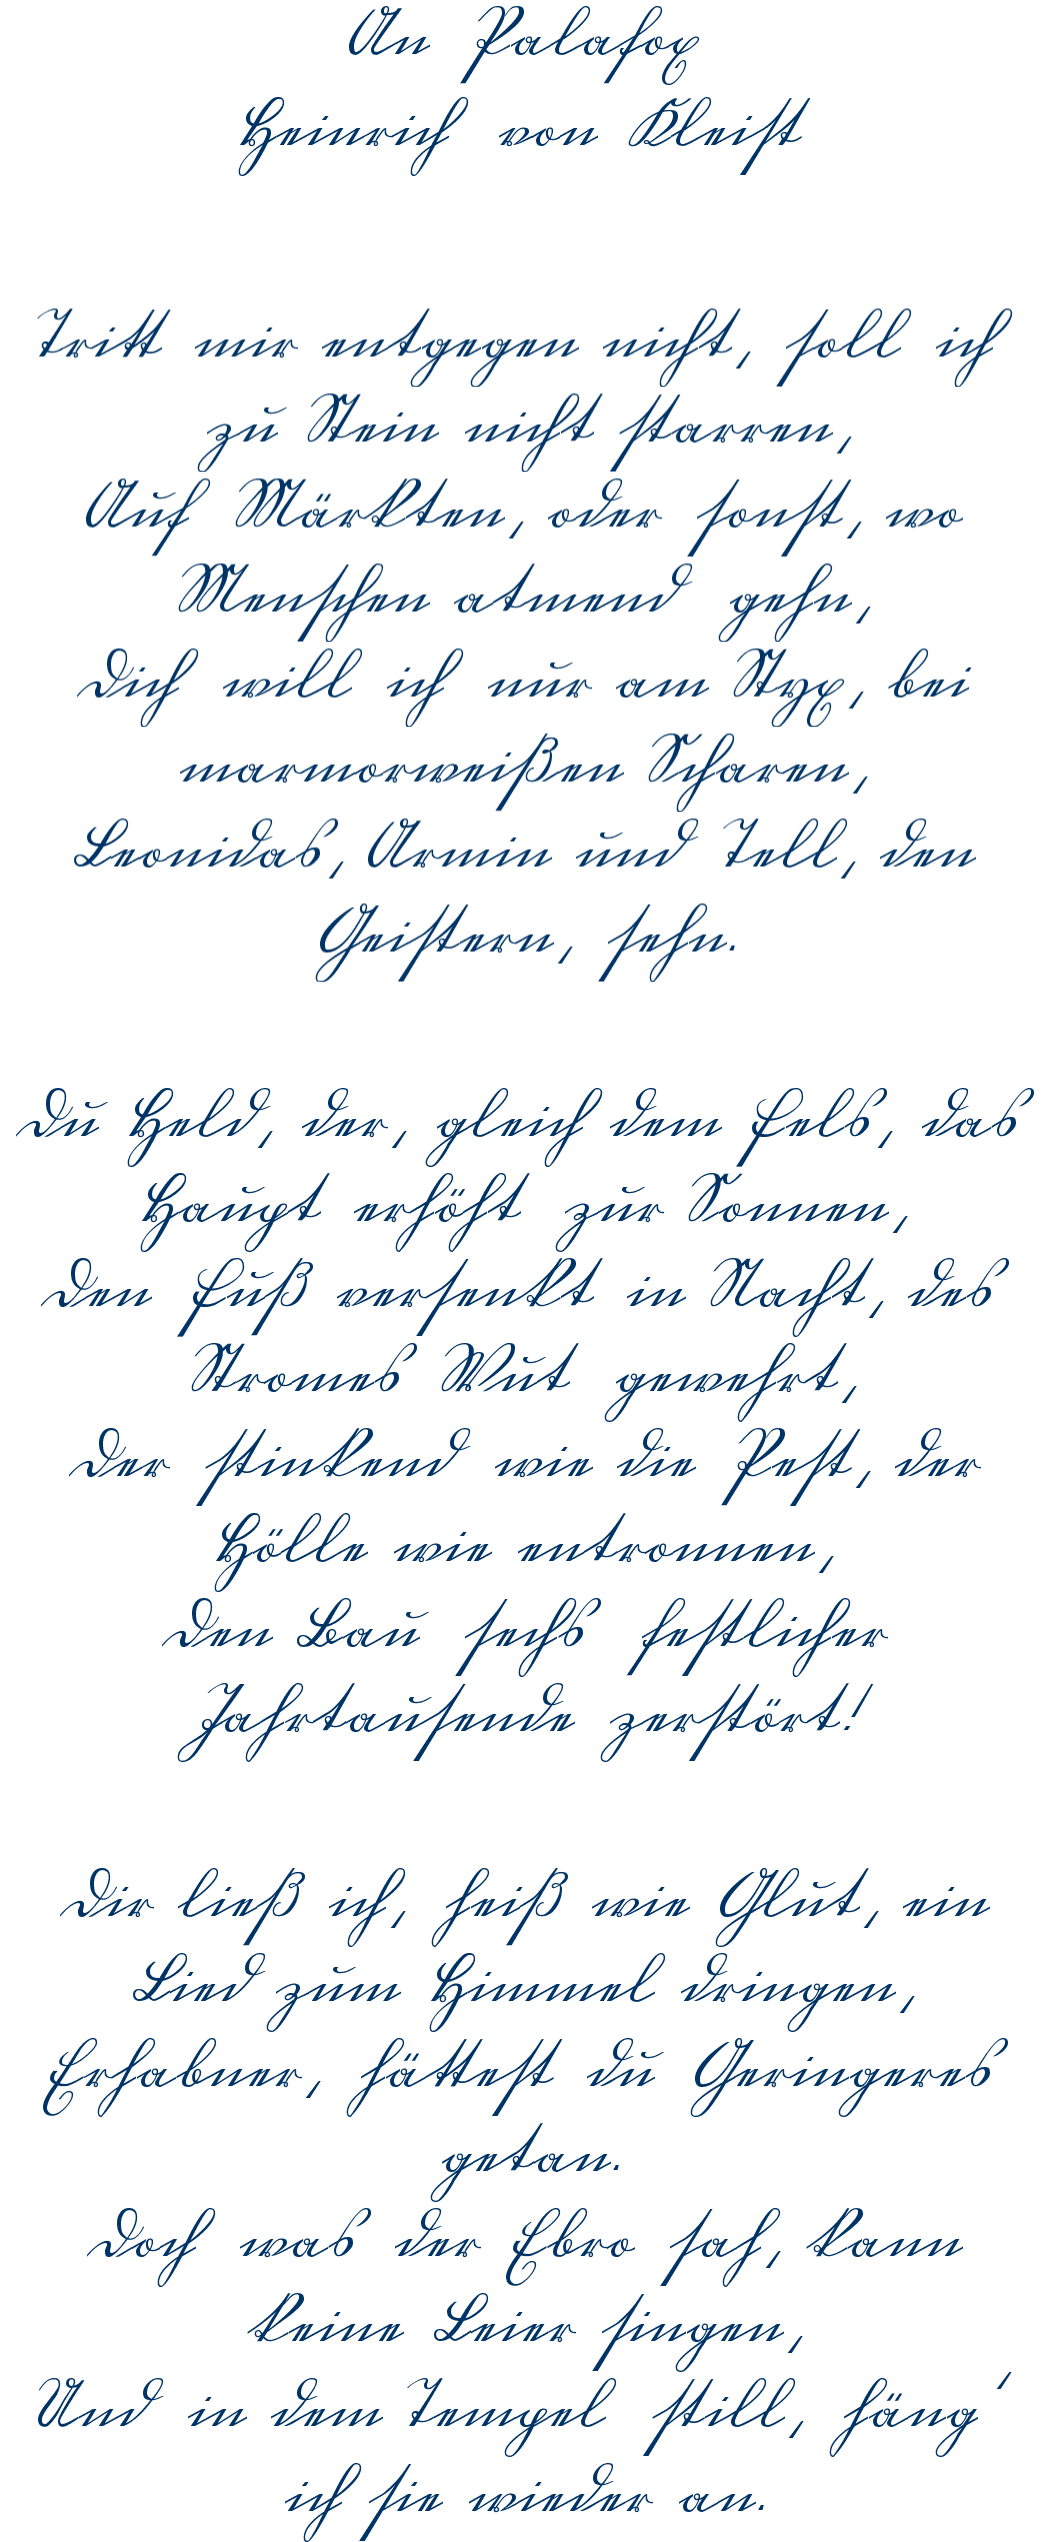 An Palafox
Heinrich von Kleist
Tritt mir entgegen nicht, soll ich
zu Stein nicht starren,
Auf Märkten, oder sonst, wo
Menschen atmend gehn,
Dich will ich nur am Styx, bei
marmorweißen Scharen,
Leonidas, Armin und Tell, den
Geistern, sehn.
Du Held, der, gleich dem Fels, das
Haupt erhöht zur Sonnen,
Den Fuß versenkt in Nacht, des
Stromes Wut gewehrt,
Der stinkend wie die Pest, der
Hölle wie entronnen,
Den Bau sechs festlicher
Jahrtausende zerstört!
Dir ließ ich, heiß wie Glut, ein
Lied zum Himmel dringen,
Erhabner, hättest du Geringeres
getan.
Doch was der Ebro sah, kann
keine Leier singen,
Und in dem Tempel still, häng'
ich sie wieder an.